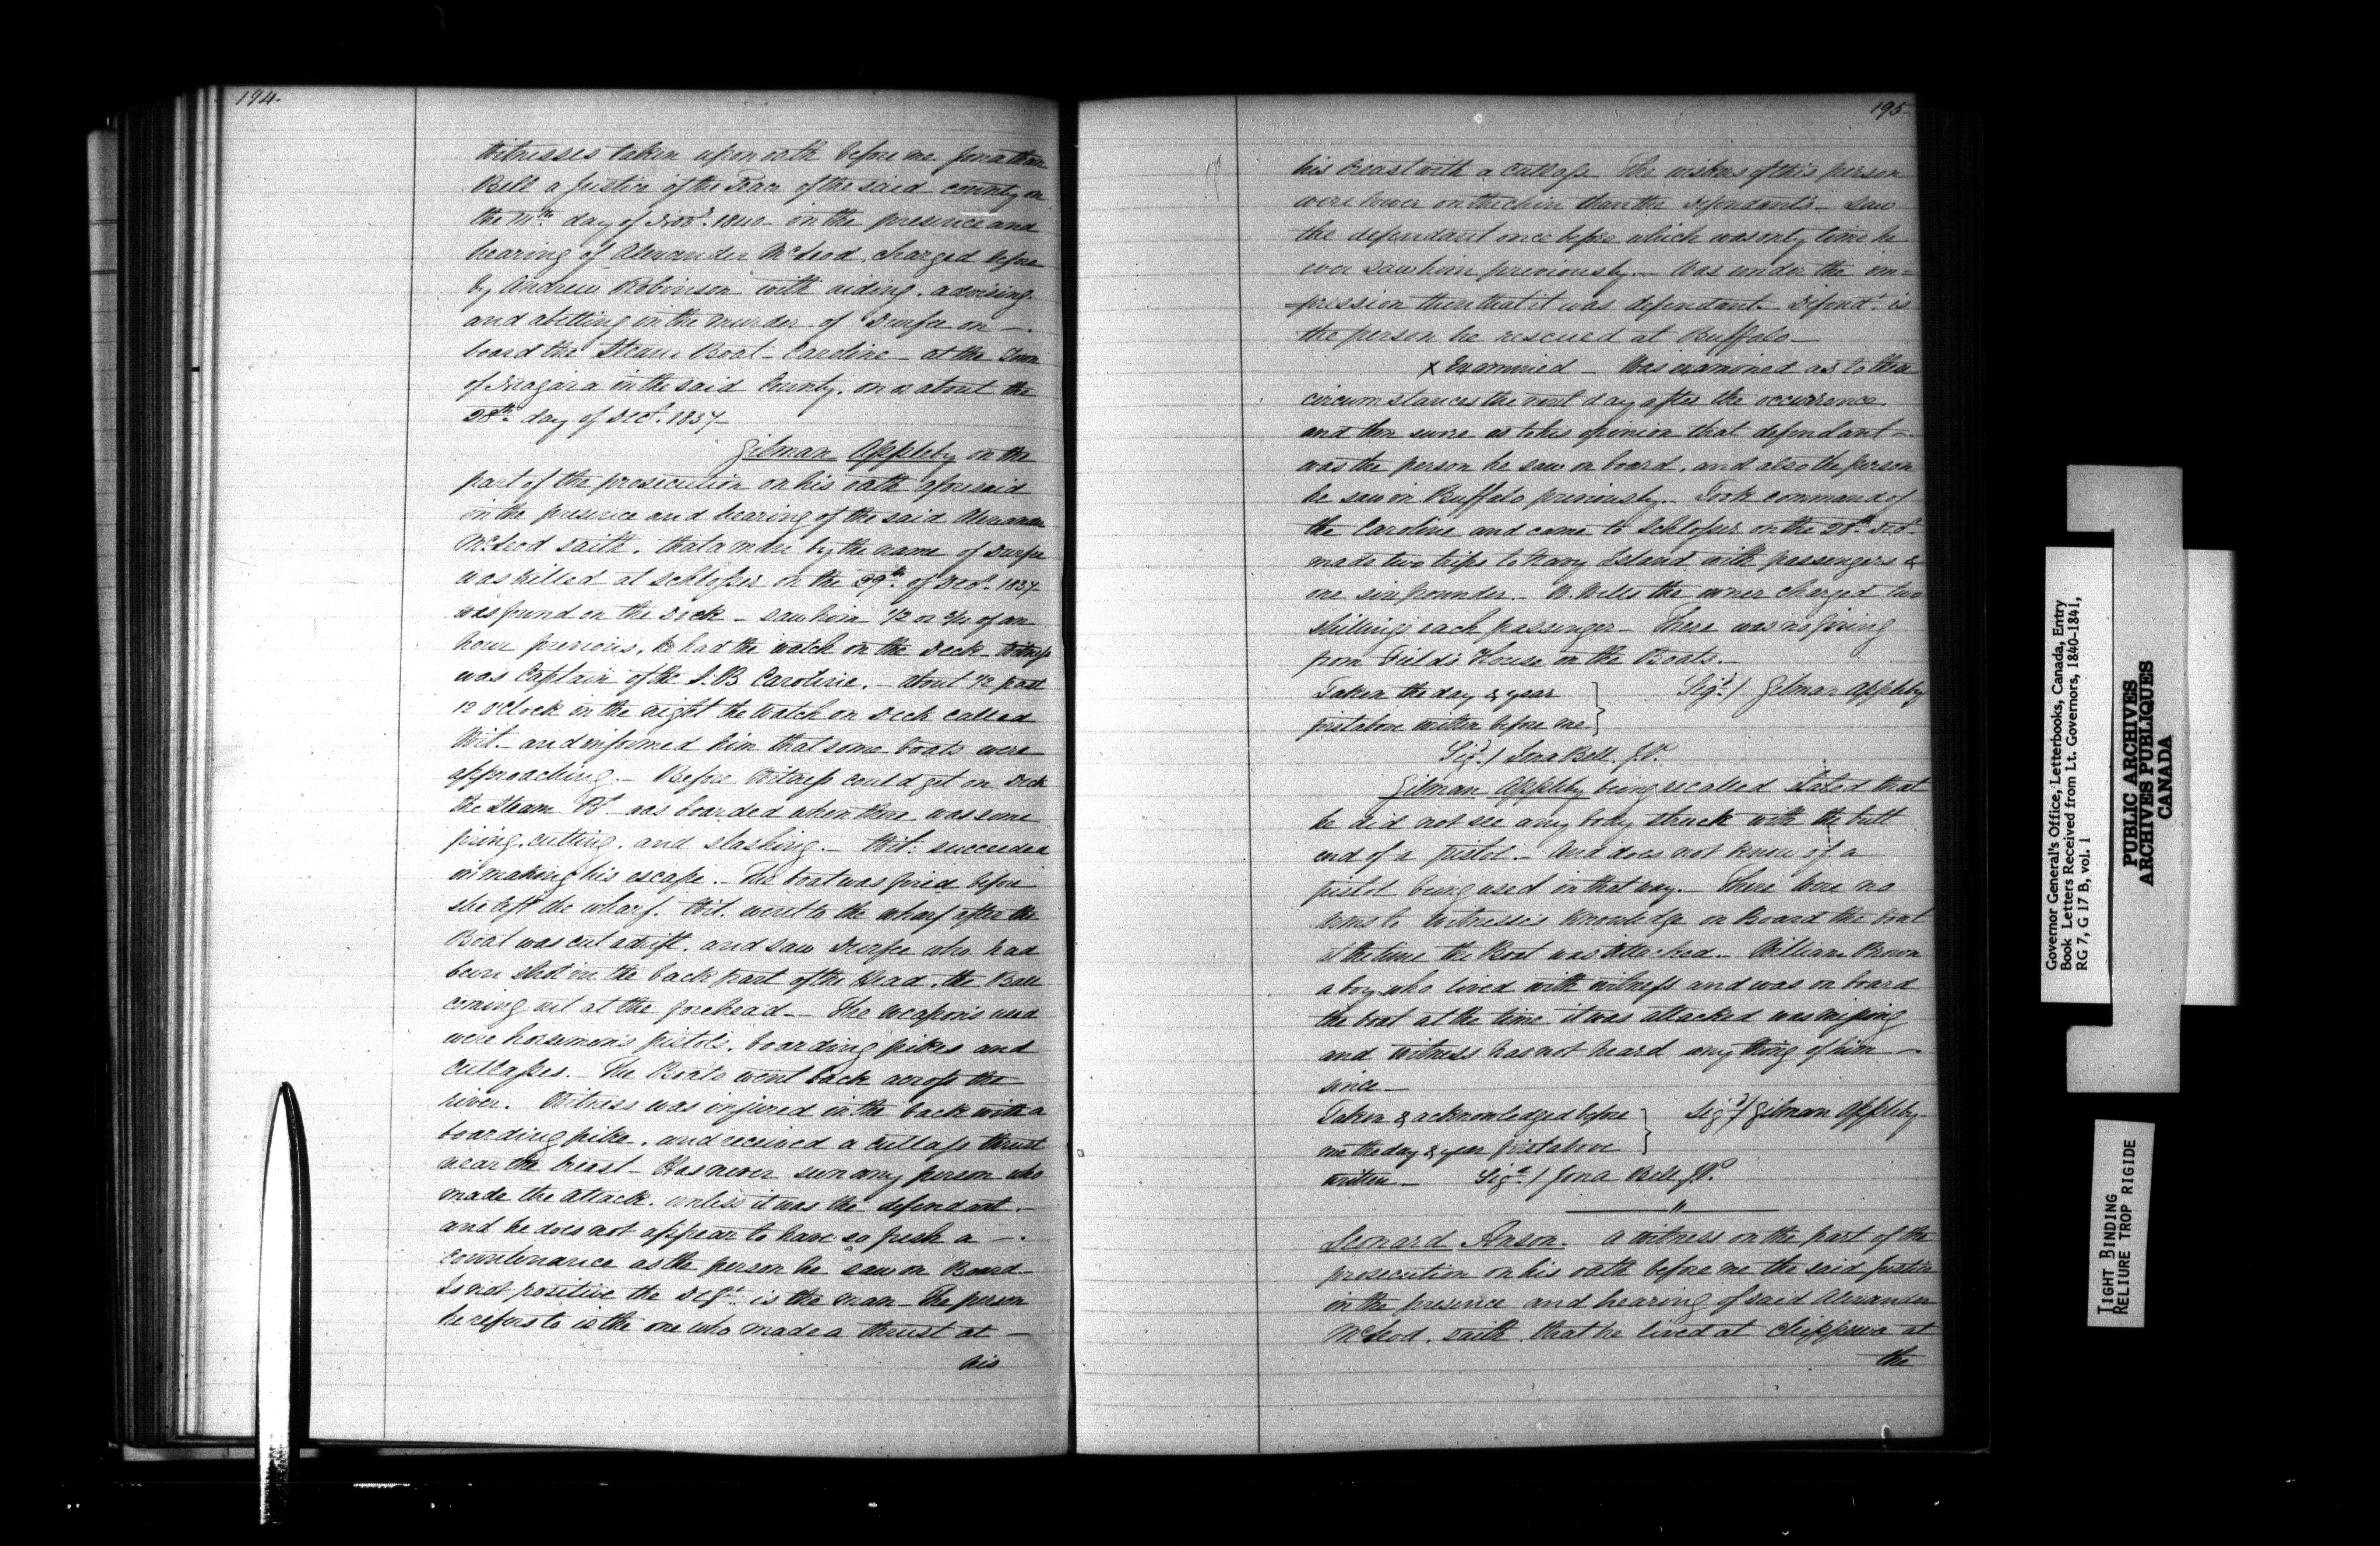 194.
Witnesses taken upon oath before me Jonathan
Bell a Justice of the Peace of the said county on
the 11th day of Novr. 1840 in the presence and
hearing of Alexander McLeod, charged before
by Andrew Robinson with aiding, advising
and abetting in the murder of Durfee on —.
board the Steam Boat - Caroline - at the Town
of Niagara in the said County, on or about the
28th day of Dect. 1837-
Gilman Appleby on the
part of the prosecution on his oath aforesaid
in the presence and hearing of the said Alexander
McLeod saith, that a man by the name of Durfee
was killed at Schlosser on the 29th of Decr. 1837-
was found on the Dock - saw him 1/2 or 3/4 of an
hour previous, he had the watch on the Deck Witness
was Captain of the S.B Caroline. - about 1/2 past
12 o'Clock in the night the Watch on Deck called
Wit. - and informed him that some boats were
approaching. - Before Witness could get on Deck
the Steam Bt was boarded when there was some
firing, cutting, and slashing. - Wit: succeeded
in making his escape. - The boat was fired before
she left the wharf. Wit. went to the wharf after the
Boat was cut adrift, and saw Durfee who had
been shot in the back part of the Head, the Ball
coming out at the forehead - The weapons used
were horsemen's pistols, boarding pikes and
Cutlasses. - The Boats went back across the
river. Witness was injured in the back with a
boarding pike, and received a cutlass thrust
near the breast - Has never seen any person who
made the attack, unless it was the defendant. -
and he does not appear to have so fresh a -.
countenance as the person he saw on Board -
Is not positive the Deft. is the man - The person
he refers to is the one who made a thrust at -
his
195-
his breast with a cutlass. The wiskers of this person
were lower on the chin than the defendant's - Saw
the defendant once before which was only time he
ever saw him previously. - Was under the im=
=pression then that it was defendant. Defendt. is
the person he rescued at Buffalo -
x Examined - Was examined as to these
circumstances the next day after the occurrence
and then swore as to his opinion that defendant =.
was the person he saw on board, and also the person
he saw in Buffalo previously. - Took command of
the Caroline and came to Schlosser on the 28th Decr.
made two trips to Navy Island with passengers &
one six pounder. - W. Wells the owner charged two
shillings each passenger - There was no firing
from Field's House on the Boats. -
Taken the day & year
first above written before me
Sigd / Gilman Appleby
Sigd / Jona Bell. J.P.
Gilman Appleby being recalled stated that
he did not see any body struck with the butt
end of a pistol. - And does not know of a
pistol being used in that way. - There were no
arms to Witness's knowledge on Board the boat
at the time the Boat was attacked. - William Brown
a boy who lived with witness and was on board
the boat at the time it was attacked was missing
and witness has not heard any thing of him -
since -
Taken & acknowledged before
me the day & year first above
written -
Sigd / Gilman Appleby -
Sigd / Jona Bell J.P.
"
Leonard Anson. a witness on the part of the
prosecution on his oath before me the said Justice
in the presence and hearing of said Alexander
McLeod, saith, that he lived at Chippewa at
the
Governor General's Office, Letterbooks, Canada, Entry
Book Letters Received from Lt. Governors, 1840-1841,
RG 7, G 17 B, vol. 1
PUBLIC ARCHIVES
ARCHIVES PUBLIQUES
CANADA
TIGHT BINDING
RELIURE TROP RIGIDE